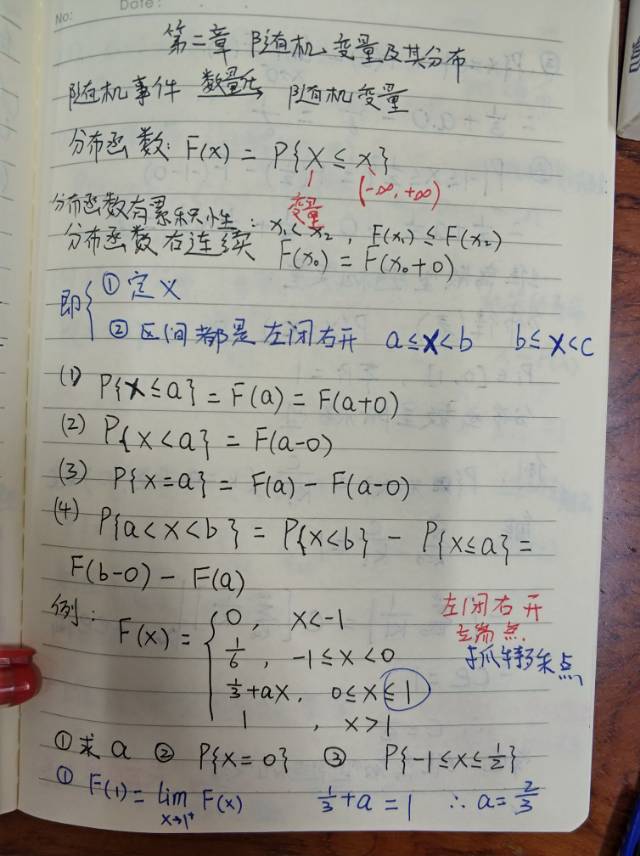 No:
Date:
第二章 随机变量及其分布
随机事件 数量化→ 随机变量
分布函数: F(x) = P{X ≤ x}
变量 (-∞, +∞)
分布函数有累积性: x₁< x₂, F(x₁) ≤ F(x₂)
分布函数右连续 F(x₀) = F(x₀+0)
即{ ① 定义
② 区间都是左闭右开 a≤x<b b≤x<c
(1) P{x≤a} = F(a) = F(a+0)
(2) P{x<a} = F(a-0)
(3) P{x=a} = F(a) - F(a-0)
(4) P{a<x<b} = P{x<b} - P{x≤a} =
F(b-0) - F(a)
例: F(x) = { 0, x<-1
1/6, -1≤x<0
1/3+ax, 0≤x≤1
1, x>1
左闭右开
左端点
抓特殊点
① 求a ② P{x=0} ③ P{-1≤x≤1/2}
① F(1) = lim x→1⁺ F(x) 1/3+a=1 ∴ a=2/3